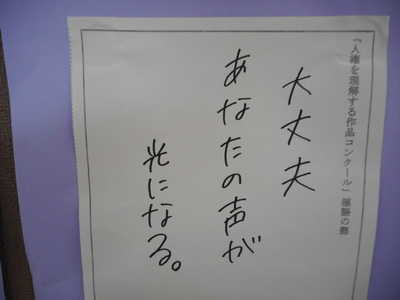 「人権を理解する作品コンクール」標語の部
大丈夫
あなたの声が
光になる。